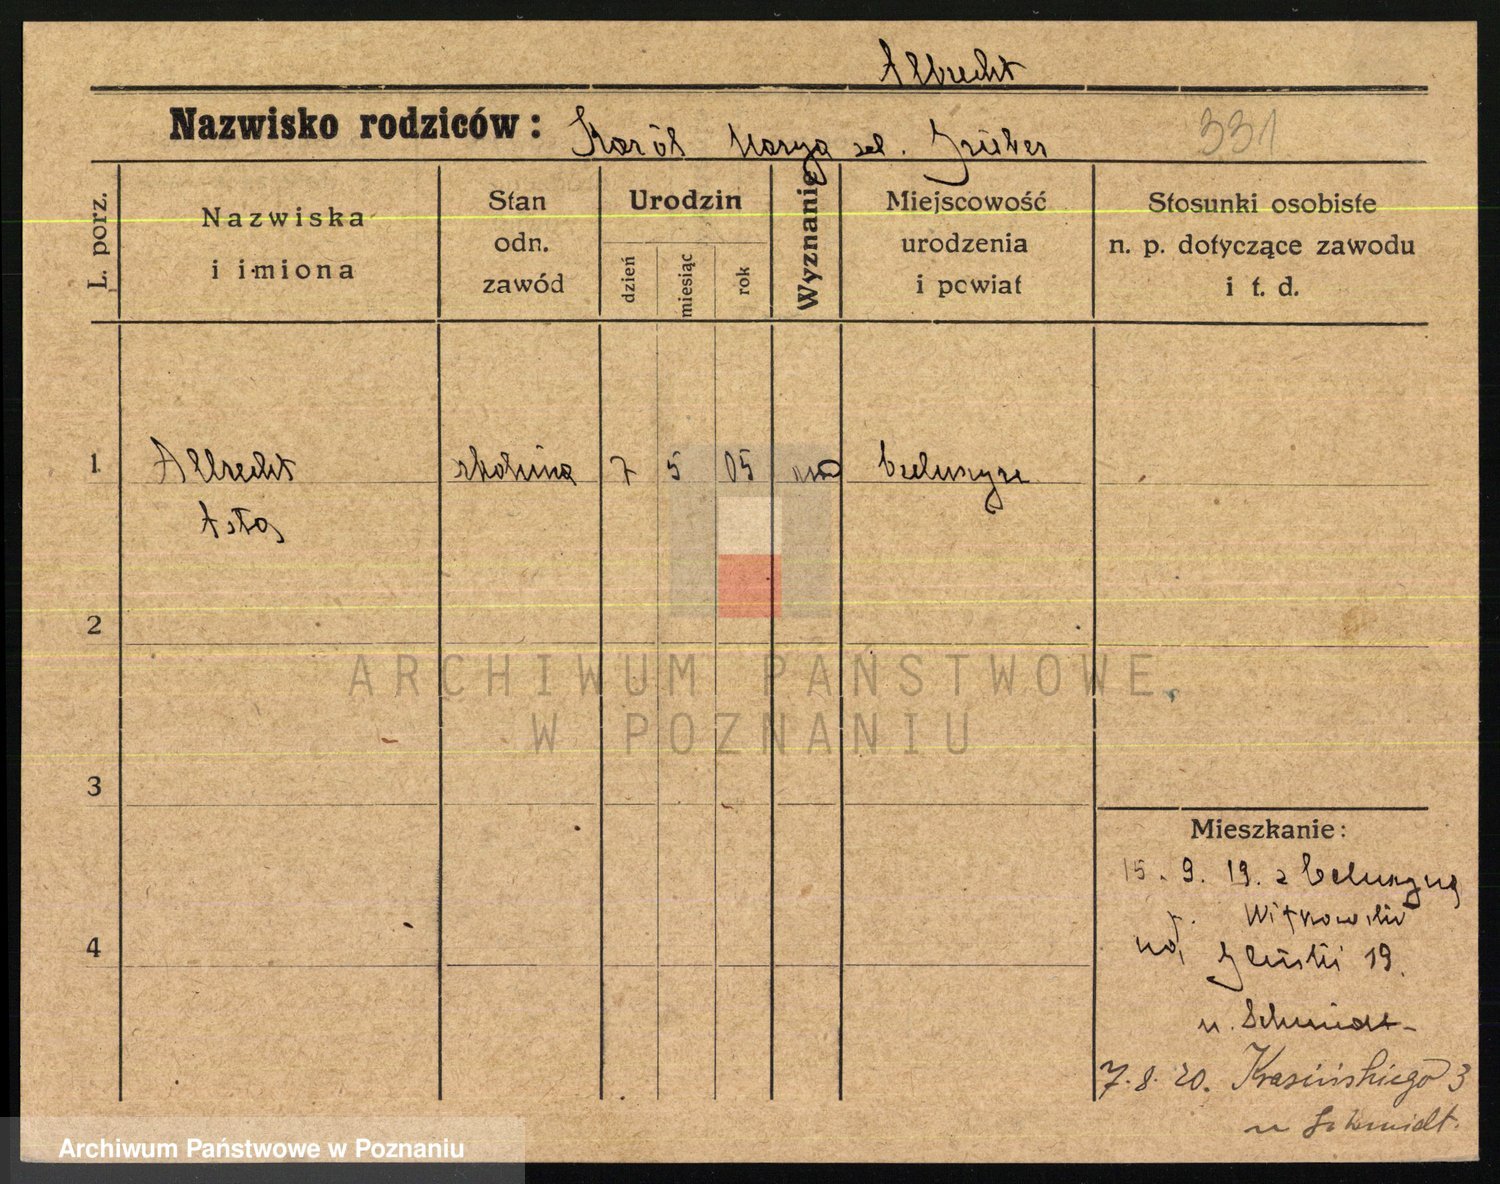 Albrecht
Nazwisko rodziców: Karól Marya Grüber
331
L. porz.
Nazwiska
i imiona
Stan
odn.
zawód
Urodzin
dzień
miesiąc
rok
Wyznanie
Miejscowość
urodzenia
i powiat
Stosunki osobiste
n. p. dotyczące zawodu
i t. d.
1. Albrecht 7 5 05
Asta
2
3
4
Mieszkanie:
15. 9. 19. z
Witkowski
19.
u. Schmidt
7. 8. 20. Krasińskiego 3
u Schmidt.
ARCHIWUM PAŃSTWOWE
W POZNANIU
Archiwum Państwowe w Poznaniu